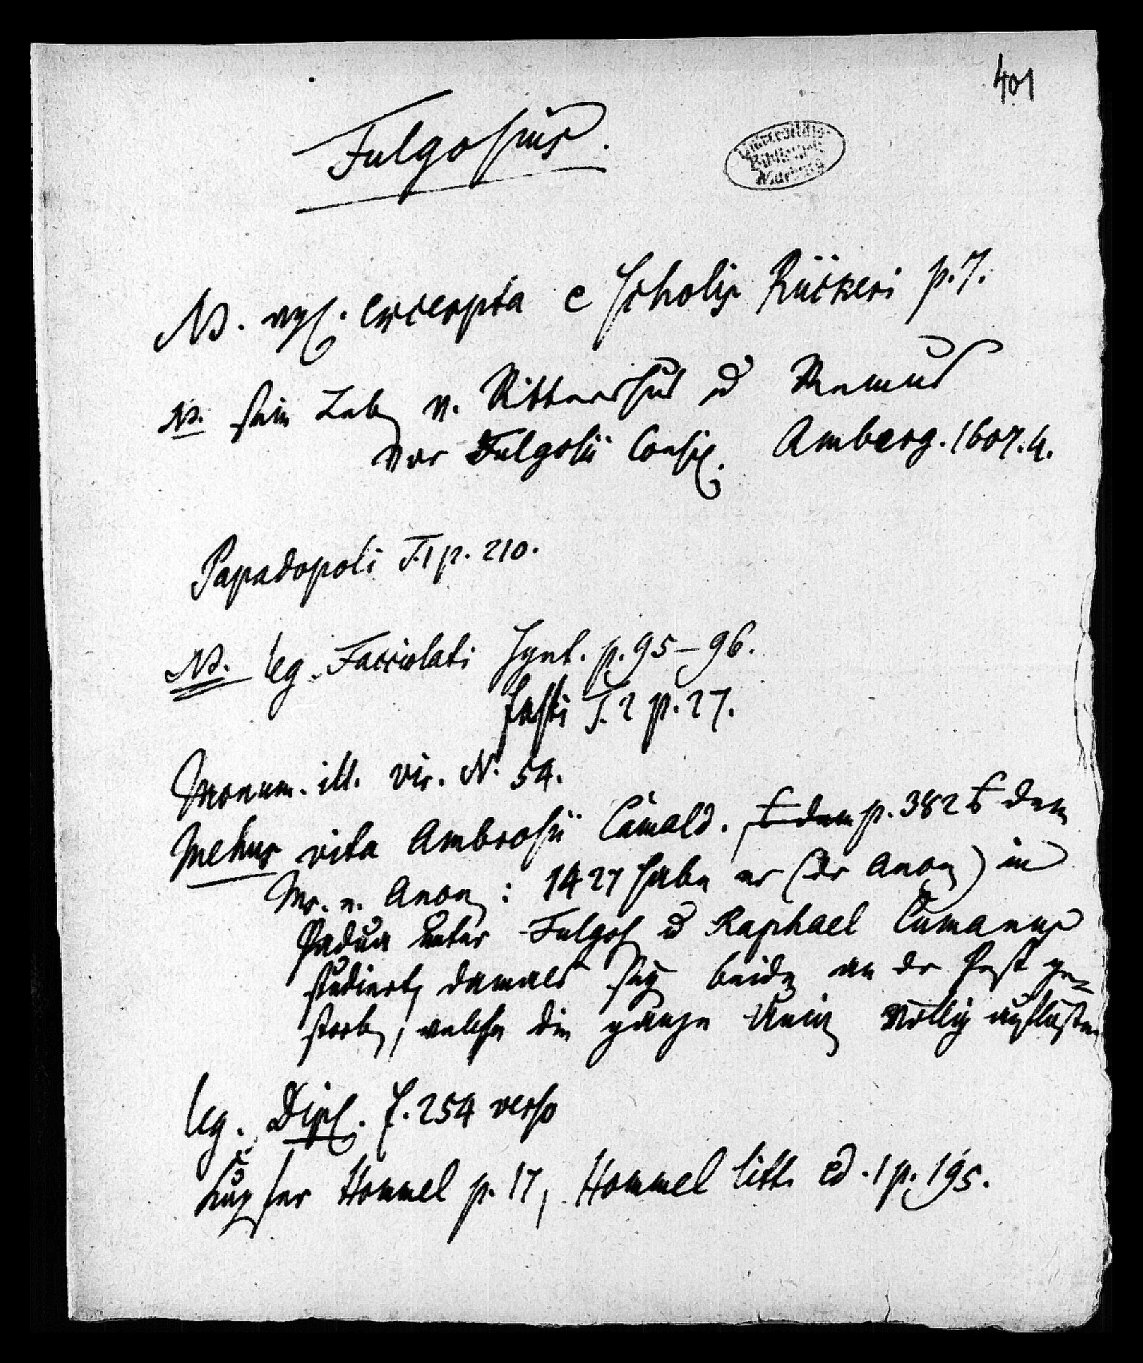 401
Fulgosius.
Universitäts-
Bibliothek
Marburg
NB. vgl. excerpta e scholis Rückeri p. 7.
NB. sein Leben v. Rittershus u Remus
vor Fulgosii Consil. Amberg. 1607. 4.
Papadopoli T. 1 p. 210.
NB. leg. Facciolati Synt. p. 95-96.
fasti T. 2 p. 27.
Monum. ill. vir. N. 54.
Mehus vita Ambrosii Camald. p. 382 dem
Ms. e. Anon: 1427 habe er (der Anon) in
Padua unter Fulgos u Raphael Cumanus
studiert, damals seyen beide an der Pest ge=
storben, welche die ganze Univ völlig auflöste
leg. Dipl. f. 254 verso
Kupfer Hommel p. 17, Hommel litt. ed. 1 p. 195.